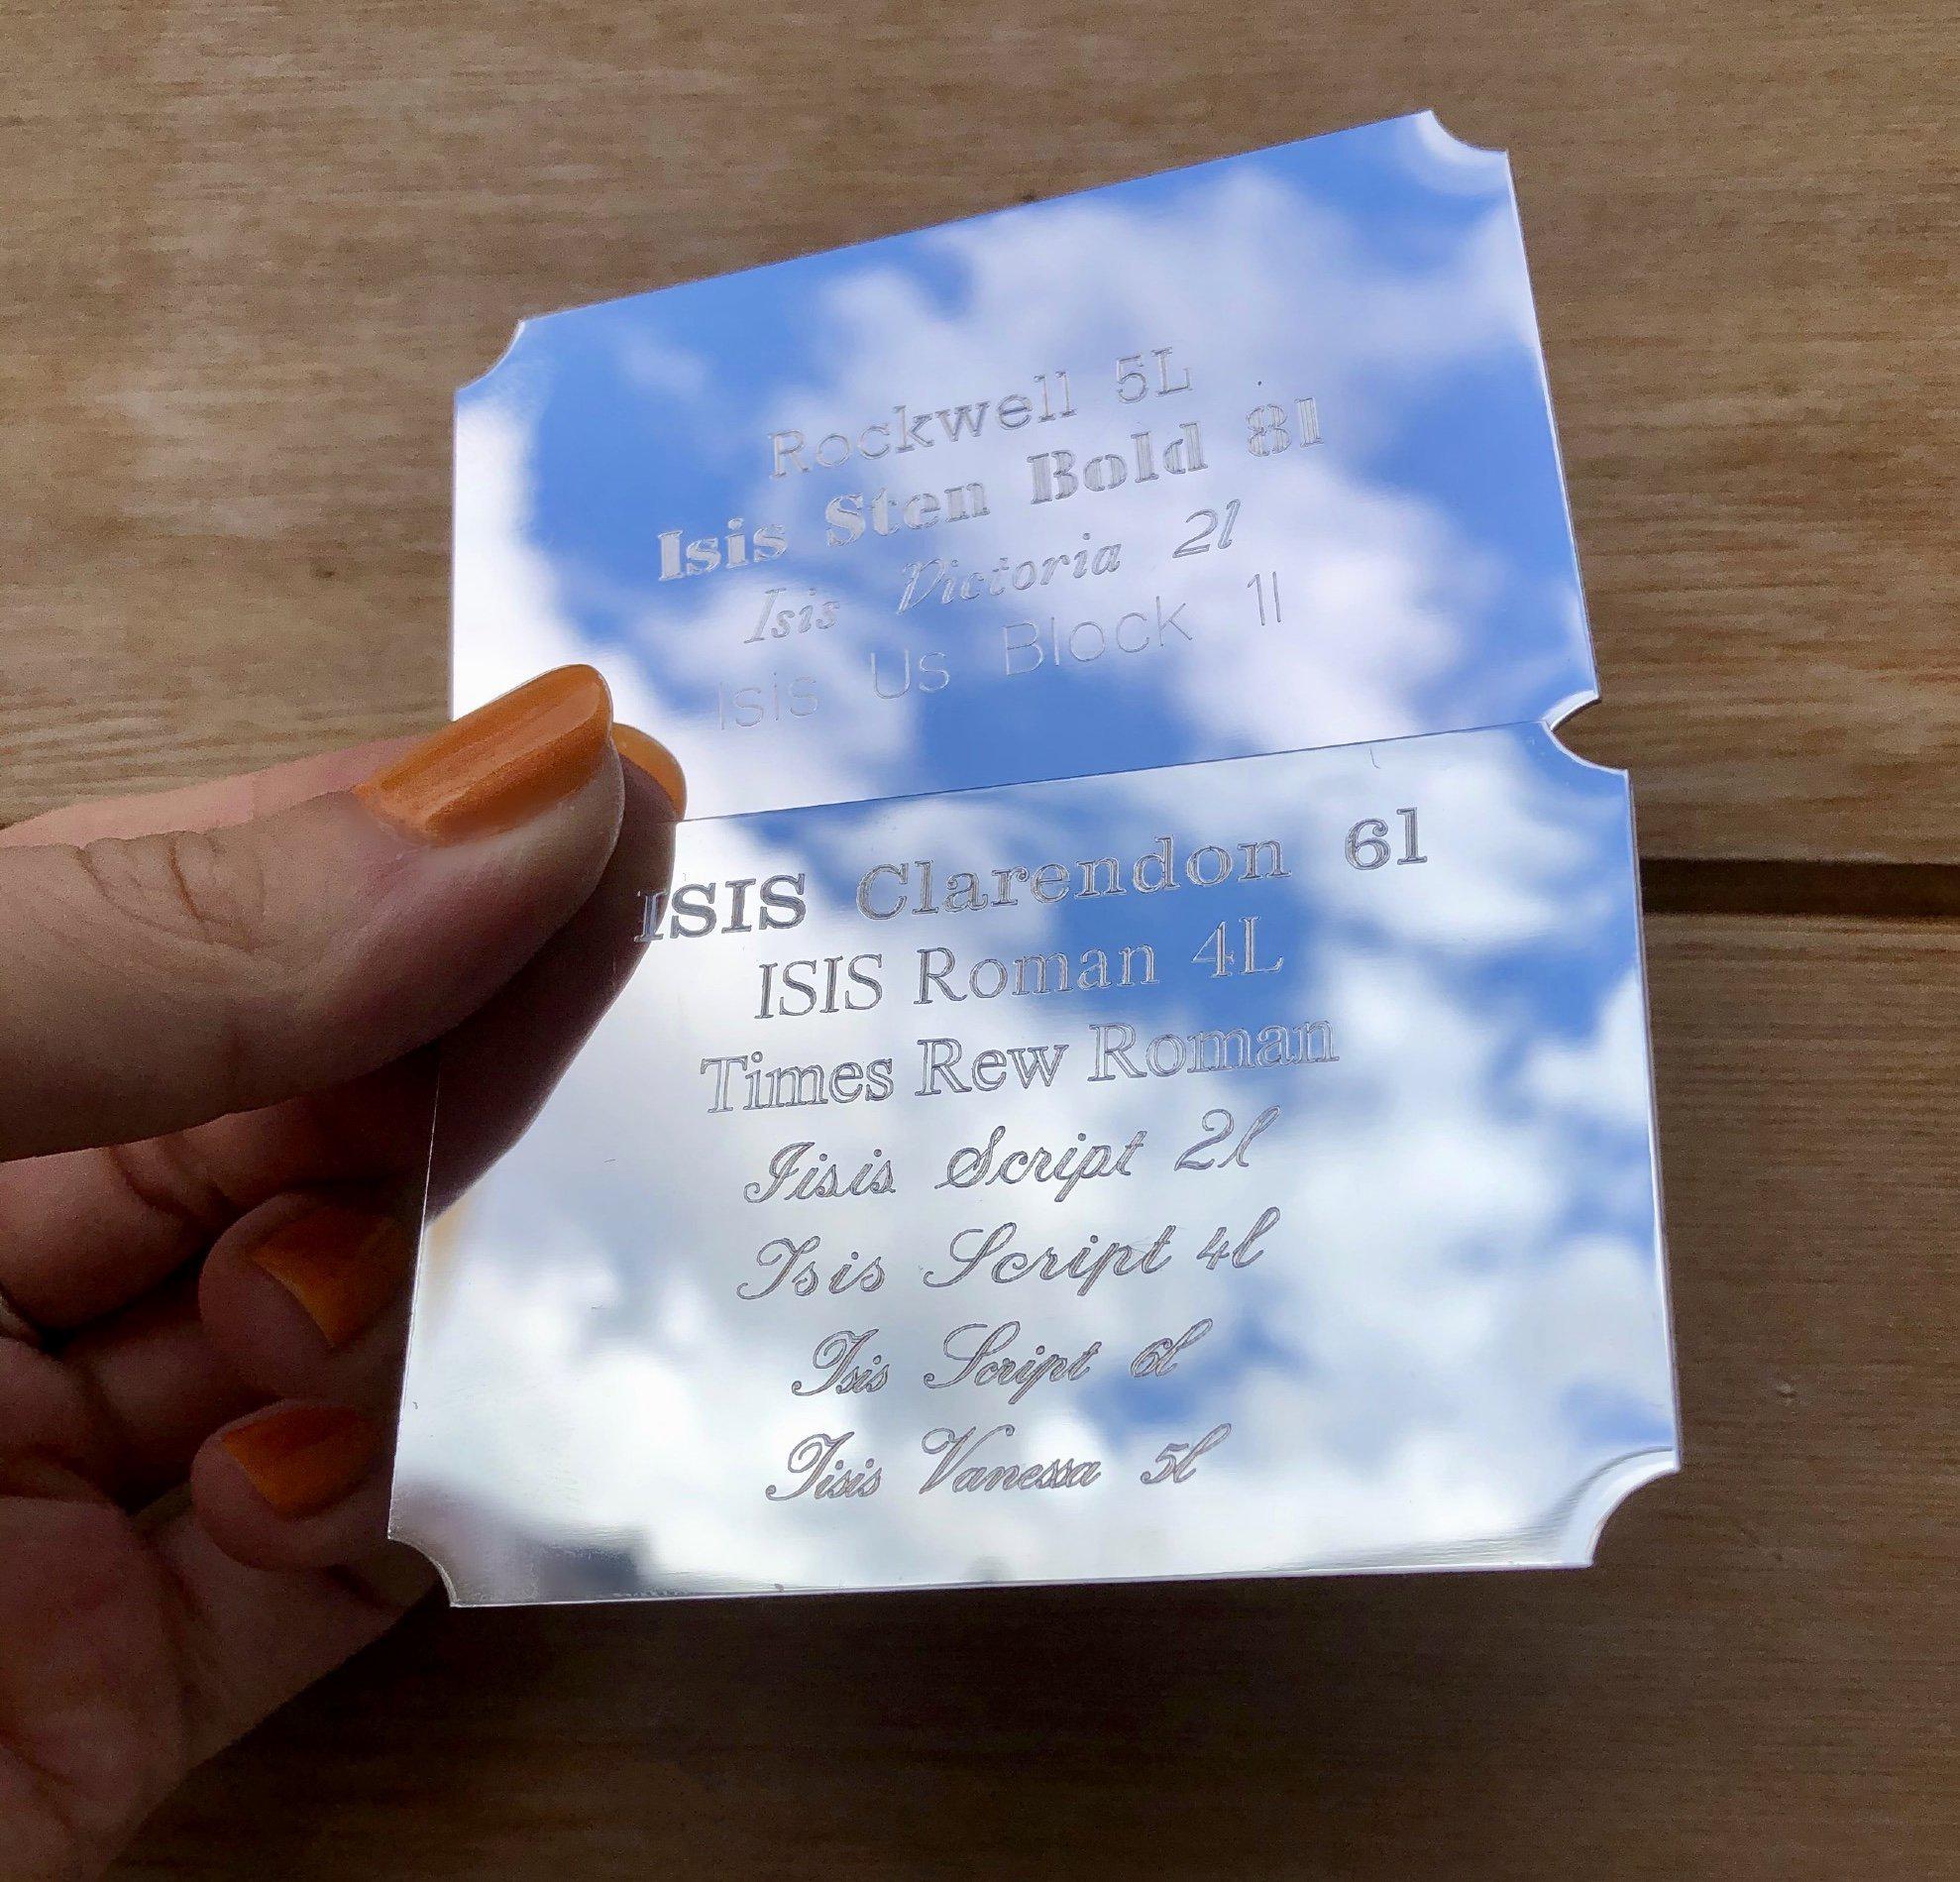 Rockwell 5L
Isis Sten Bold 8l
Isis Victoria 2l
Isis Us Block 1l
ISIS Clarendon 6l
ISIS Roman 4L
Times Rew Roman
Iisis Script 2l
Isis Script 4l
Isis Script 6l
Iisis Vanessa 5l